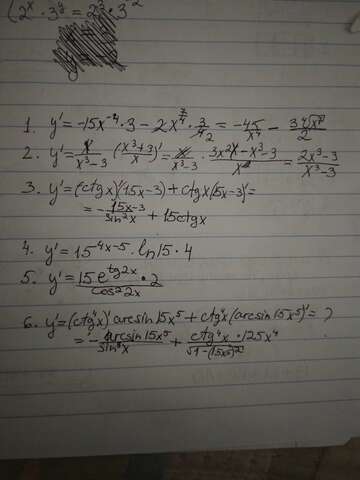 (2^x · 3^y = 2^3 · 3^-2
1. y' = -15x^-4 · 3 - 2x^(7/4) · 3/42 = -45/x^4 - 3 4√x^7/2
2. y' = x/(x^3-3) · ((x^3+3)/x)' = x/(x^3-3) · (3x^2x - x^3 - 3)/x^2 = (2x^3-3)/(x^3-3)
3. y' = (ctgx)'(15x-3) + ctgx(15x-3)' =
= - (15x-3)/sin^2x + 15ctgx
4. y' = 15^(4x-5) · ln15 · 4
5. y' = 15·e^(tg2x)/cos^2 2x · 2
6. y' = (ctg^4x)' arcsin15x^5 + ctg^4x(arcsin15x^5)' = ?
= - arcsin15x^5/sin^4x + ctg^4x · 125x^4/√1-(15x^5)^2